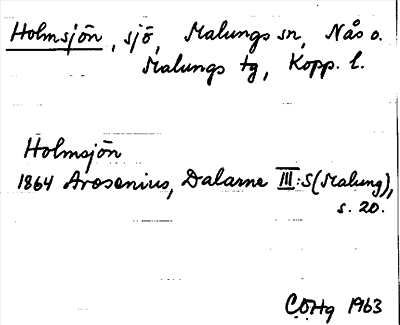 Holmsjön, sjö, Malungs sn, Nås o.
Malungs tg, Kopp. l.
Holmsjön
1864 Arosenius, Dalarne III:S (Malung),
s. 20.
C.O.Hg 1963